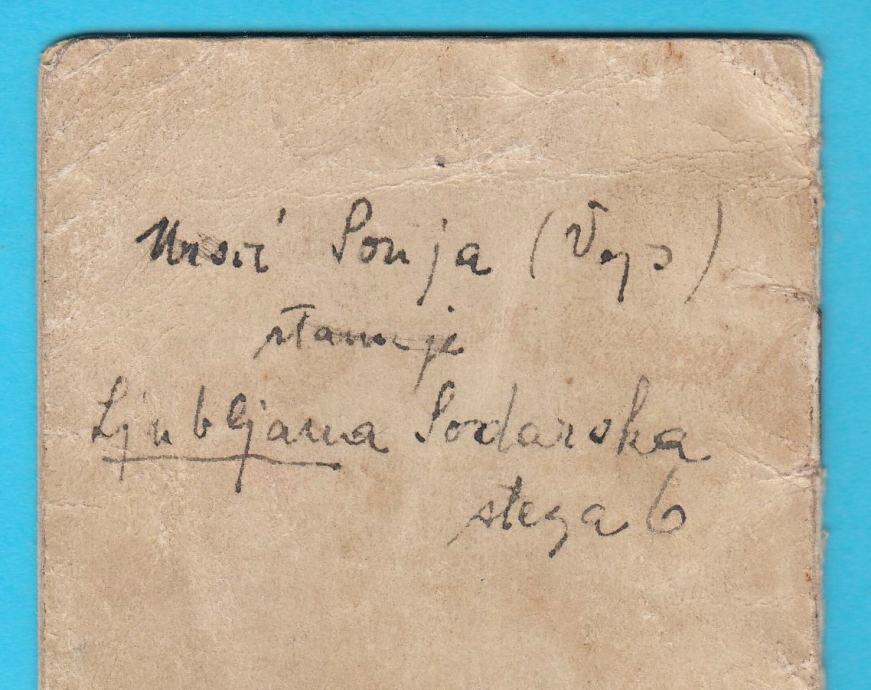 Ursić Sonja
stanuje
Ljubljana Sodarska
steza 6